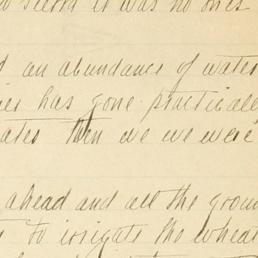 it was no ones
an abundance of water
has gone practical
then we we were
ahead and all the groun
to irrigate the wheat